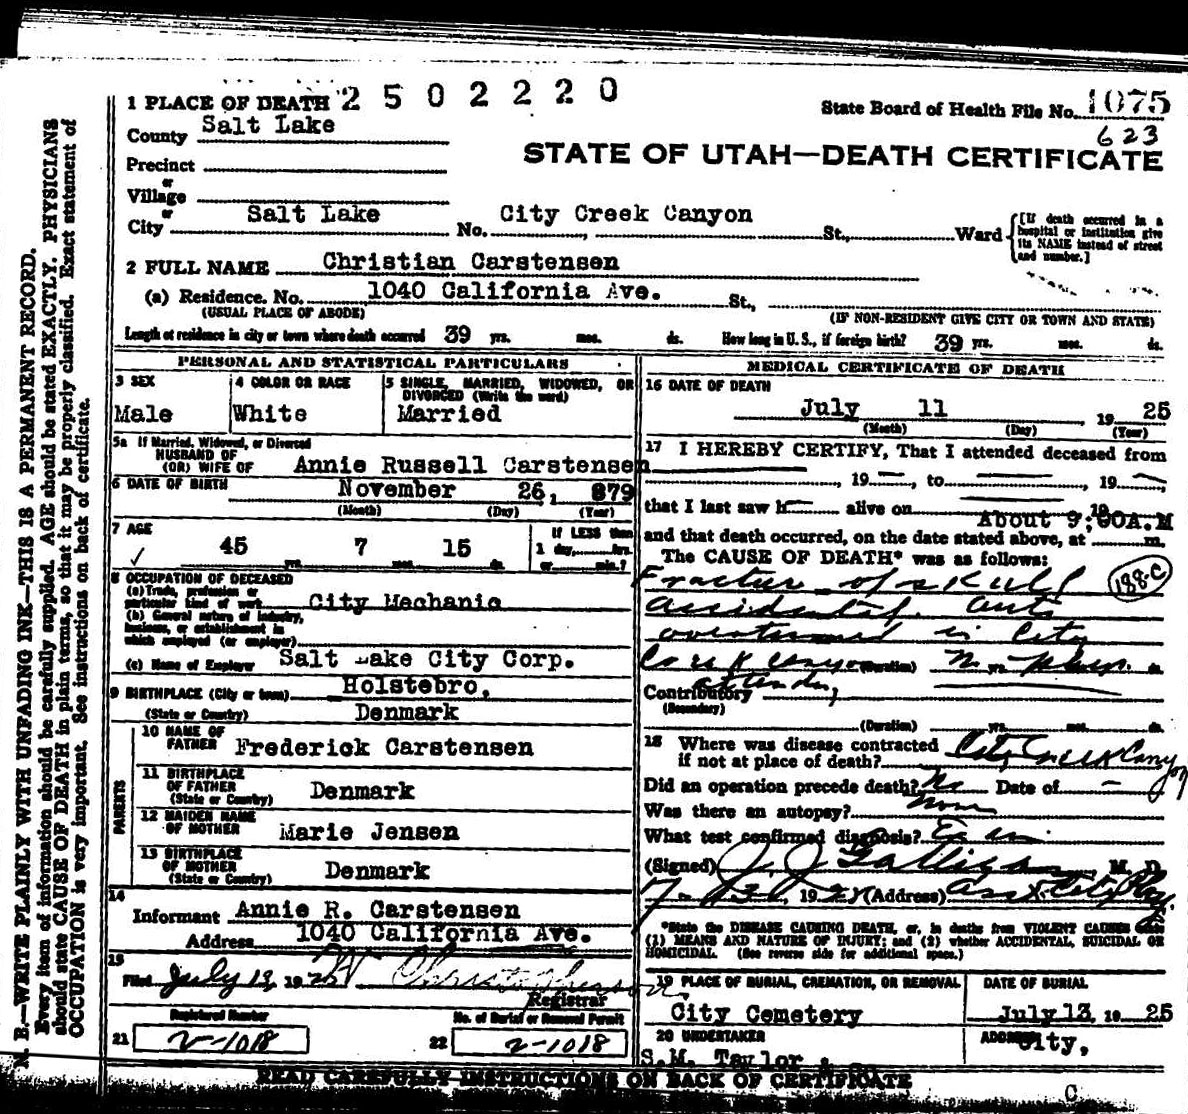 1 PLACE OF DEATH 2502220
State Board of Health File No. 1075
County Salt Lake
623
STATE OF UTAH—DEATH CERTIFICATE
Precinct
or
Village
or
City Salt Lake No. City Creek Canyon St., Ward
[If death occurred in a hospital or institution give its NAME instead of street and number.]
2 FULL NAME Christian Carstensen
(a) Residence. No. 1040 California Ave. St.,
(USUAL PLACE OF ABODE) (IF NON-RESIDENT GIVE CITY OR TOWN AND STATE)
Length of residence in city or town where death occurred 39 yrs. mos. ds. How long in U. S., if foreign birth? 39 yrs. mos. ds.
PERSONAL AND STATISTICAL PARTICULARS
3 SEX
Male
4 COLOR OR RACE
White
5 SINGLE, MARRIED, WIDOWED, OR
DIVORCED (Write the word)
Married
5a If Married, Widowed, or Divorced
HUSBAND OF
(OR) WIFE OF Annie Russell Carstensen
6 DATE OF BIRTH November 26, 879
(Month) (Day) (Year)
7 AGE
45 yrs. 7 mos. 15 ds.
If LESS than
1 day, hrs.
or min.?
8 OCCUPATION OF DECEASED
(a) Trade, profession or
particular kind of work City Mechanic
(b) General nature of industry,
business, or establishment in
which employed (or employer)
(c) Name of Employer Salt Lake City Corp.
9 BIRTHPLACE (City or town) Holstebro,
(State or Country) Denmark
PARENTS
10 NAME OF
FATHER Frederick Carstensen
11 BIRTHPLACE
OF FATHER
(State or Country) Denmark
12 MAIDEN NAME
OF MOTHER Marie Jensen
13 BIRTHPLACE
OF MOTHER
(State or Country) Denmark
14
Informant Annie R. Carstensen
Address 1040 California Ave.
15
Filed July 13, 1925
Registrar
Registered Number
21 2-1018
No. of Burial or Removal Permit
22 2-1018
MEDICAL CERTIFICATE OF DEATH
16 DATE OF DEATH
July 11 1925
(Month) (Day) (Year)
17 I HEREBY CERTIFY, That I attended deceased from
, 19 , to , 19 ,
that I last saw h alive on 19
About 9;00A.M
and that death occurred, on the date stated above, at m.
The CAUSE OF DEATH* was as follows:
Fracture of skull 188-c
accidental. auto
overturned in City
Creek Canyon (Duration) No yrs. phys. ds.
attending
Contributory
(Secondary)
(Duration) yrs. mos. ds.
18 Where was disease contracted
if not at place of death? City Creek Canyon
Did an operation precede death? No Date of —
Was there an autopsy? None
What test confirmed diagnosis?
(Signed) J. J. Galligan M. D.
, 19 (Address) Asst City Phy.
*State the DISEASE CAUSING DEATH, or, in deaths from VIOLENT CAUSES state
(1) MEANS AND NATURE OF INJURY; and (2) whether ACCIDENTAL, SUICIDAL OR
HOMICIDAL. (See reverse side for additional space.)
19 PLACE OF BURIAL, CREMATION, OR REMOVAL
City Cemetery
DATE OF BURIAL
July 13, 1925
20 UNDERTAKER
S.M. Taylor & Co
ADDRESS City,
READ CAREFULLY INSTRUCTIONS ON BACK OF CERTIFICATE
C
N. B.—WRITE PLAINLY WITH UNFADING INK—THIS IS A PERMANENT RECORD.
Every item of information should be carefully supplied. AGE should be stated EXACTLY. PHYSICIANS
should state CAUSE OF DEATH in plain terms, so that it may be properly classified. Exact statement of
OCCUPATION is very important. See instructions on back of certificate.